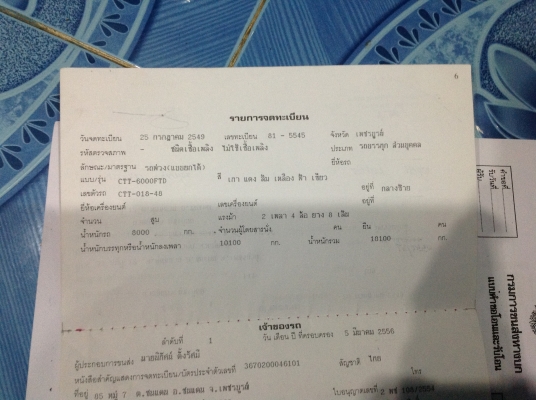 6
รายการจดทะเบียน
วันจดทะเบียน 25 กรกฎาคม 2549 เลขทะเบียน 81 - 5545 จังหวัด เพชรบูรณ์
รหัสตรวจสภาพ - ชนิดเชื้อเพลิง ไม่ใช้เชื้อเพลิง ประเภท รถบรรทุก ส่วนบุคคล
ลักษณะ/มาตรฐาน รถพ่วง(แยกยกได้) ยี่ห้อรถ
แบบ/รุ่น CTT-6000FTD สี เทา แดง ส้ม เหลือง ฟ้า เขียว
เลขตัวรถ CTT-018-48 อยู่ที่ กลางซ้าย
ยี่ห้อเครื่องยนต์ เลขเครื่องยนต์ อยู่ที่
จำนวน สูบ แรงม้า 2 เพลา 4 ล้อ ยาง 8 เส้น
น้ำหนักรถ 8000 กก. จำนวนผู้โดยสารนั่ง คน ยืน คน
น้ำหนักบรรทุกหรือน้ำหนักลงเพลา 10100 กก. น้ำหนักรวม 18100 กก.
เจ้าของรถ
ลำดับที่ 1 วัน เดือน ปี ที่ครอบครอง 5 มีนาคม 2556
ผู้ประกอบการขนส่ง
หนังสือสำคัญแสดงการจดทะเบียน/บัตรประจำตัวเลขที่ 3670200046101 สัญชาติ ไทย
ที่อยู่ 65 หมู่ 7 ต.ชนแดน อ.ชนแดน จ.เพชรบูรณ์ โทร
ใบอนุญาตเลขที่
กรมการขนส่งทางบก